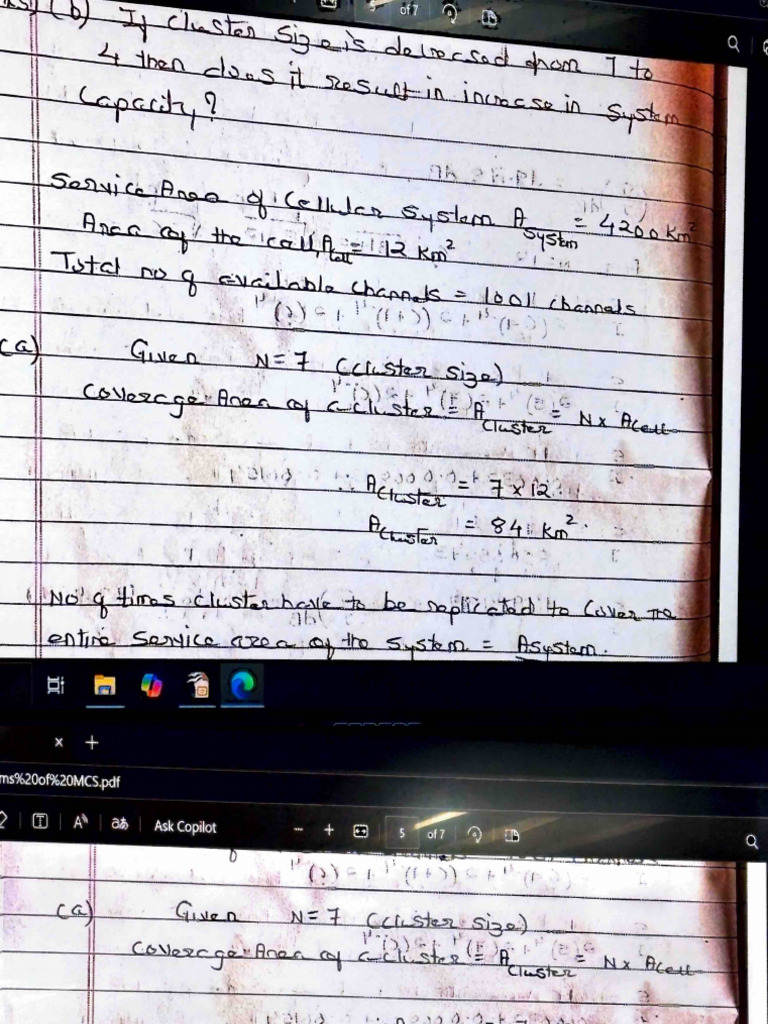 (b) If cluster size is decreased from 7 to
4 then does it result in increase in system
capacity?
Service Area of Cellular system A system = 4200 km²
Area of the cell, Acell = 12 km²
Total no of available channels = 1001 channels
(a) Given N = 7 (cluster size)
Coverage Area of a cluster = A cluster = N x Acell
∴ A cluster = 7 x 12
A cluster = 84 km².
No of times cluster have to be replicated to cover the
entire service area of the system = Asystem.
ms%20of%20MCS.pdf
Ask Copilot
5 of 7
(a) Given N = 7 (cluster size)
Coverage Area of a cluster = A cluster = N x Acell